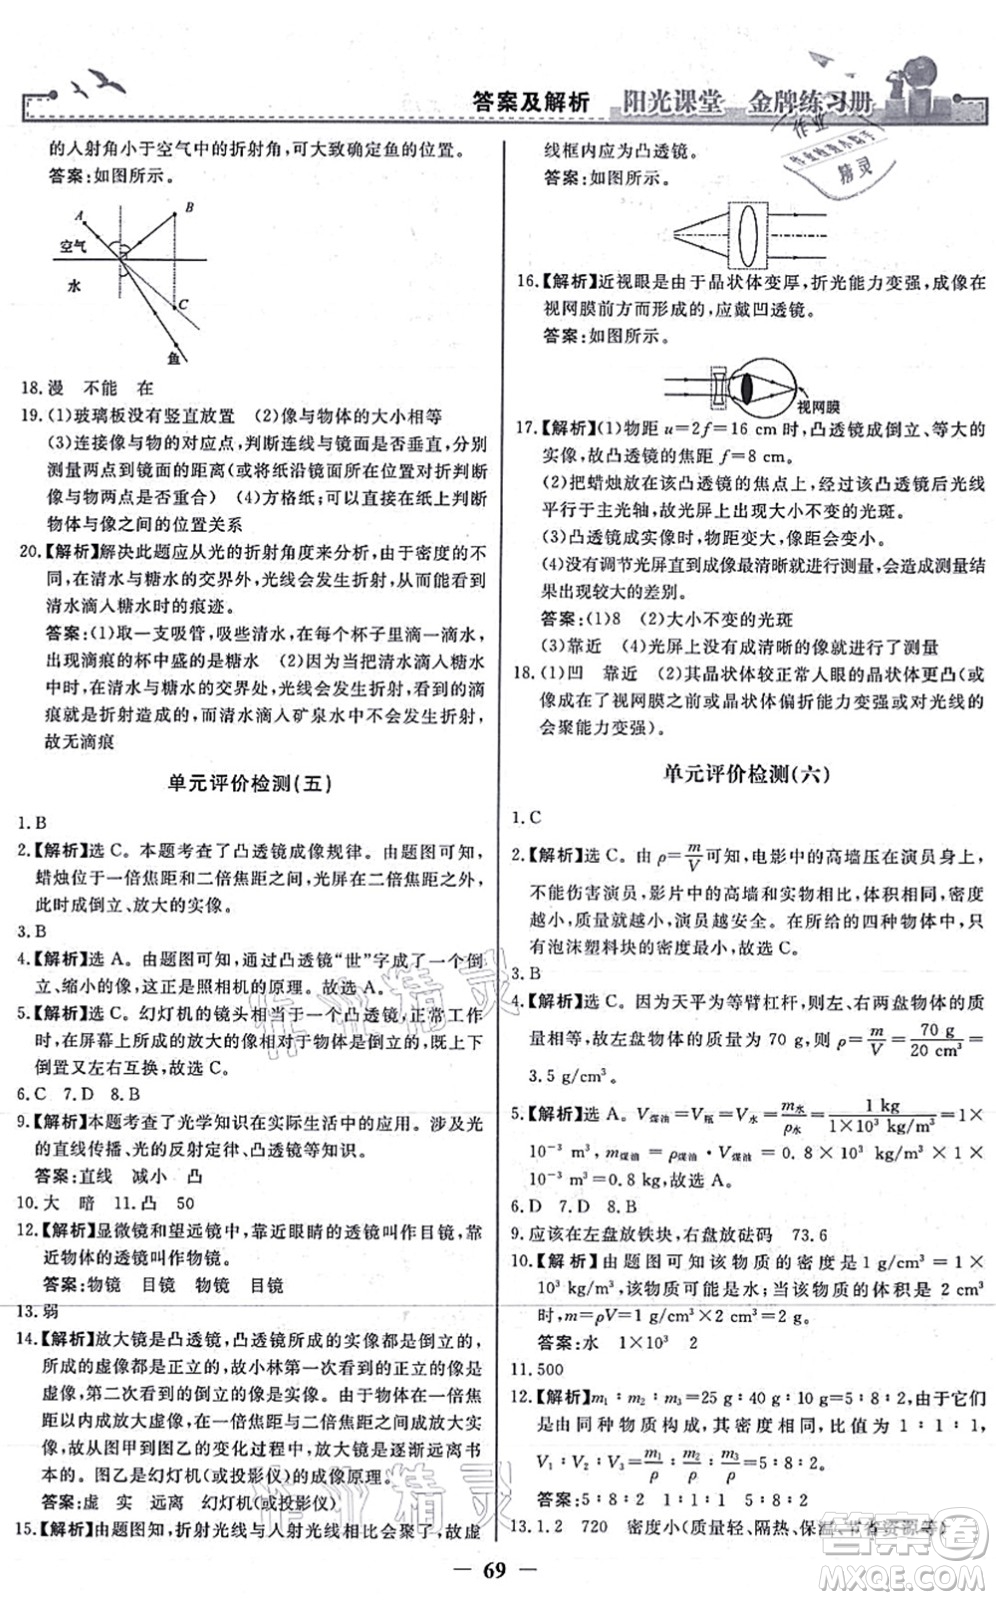 答案及解析 阳光课堂 金牌练习册
的入射角小于空气中的折射角,可大致确定鱼的位置。
答案:如图所示。
A
B
空气
水
C
鱼
18.漫 不能 在
19.(1)玻璃板没有竖直放置 (2)像与物体的大小相等
(3)连接像与物的对应点,判断连线与镜面是否垂直,分别
测量两点到镜面的距离(或将纸沿镜面所在直线对折判断
像与物两点是否重合) (4)方格纸;可以直接在纸上判断
物体与像之间的位置关系
20.【解析】解决此题应从光的折射角度来分析,由于密度的不
同,在清水与糖水的交界处,光线会发生折射,我们会看到
清水滴入糖水时的痕迹。
答案:(1)取一支吸管,吸些清水,在每个杯子里滴几滴水,
出现滴痕的杯中盛的是糖水 (2)因为,当清水滴入糖水
中时,在清水和糖水的交界处,光线会发生折射,看到的滴
痕就是折射造成的,而清水滴入矿泉水中不会发生折射,
故无滴痕
单元评价检测(五)
1.B
2.【解析】选C。本题考查了凸透镜成像规律。由题图可知,
蜡烛位于一倍焦距和二倍焦距之间,光屏在二倍焦距外,
此时成倒立、放大的实像。
3.B
4.【解析】选A。由题图可知,通过凸透镜“世”字成了一个倒
立、缩小的像,这是照相机的原理。故选A。
5.【解析】选C。幻灯机的镜头相当于一个凸透镜,正常工作
时,在屏幕上所成的放大的像相对于物体是倒立的,即上下
倒置又左右互换,故选C。
6.C 7.D 8.B
9.【解析】本题考查了光学知识在实际生活中的应用。涉及光
的直线传播、光的反射定律、凸透镜等知识。
答案:直线 减小 凸
10.大 暗 11.凸 50
12.【解析】显微镜和望远镜中,靠近眼睛的透镜叫作目镜,靠
近物体的透镜叫作物镜。
答案:物镜 目镜 物镜 目镜
13.弱
14.【解析】放大镜是凸透镜,凸透镜所成的实像都是倒立的,
所成的虚像都是正立的,故小林第一次看到的正立的像是
虚像,第二次看到的倒立的像是实像。由于物体在一倍焦
距以内成放大虚像,在一倍焦距和二倍焦距之间成放大实
像,故由图甲到图乙的变化过程中,放大镜是逐渐远离书
本的。图乙是幻灯机(或投影仪)的成像原理。
答案:虚 实 远离 幻灯机(或投影仪)
15.【解析】由题图知,折射光线与入射光线相比会聚了,故虚
线框内应为凸透镜。
答案:如图所示。
16.【解析】近视眼是由于晶状体变厚,折光能力变强,成像在
视网膜前方而形成的,应戴凹透镜。
答案:如图所示。
视网膜
17.【解析】(1)物距u=2f=16 cm时,凸透镜成倒立、等大的
实像,故凸透镜的焦距f=8 cm。
(2)把蜡烛放在该凸透镜的焦点上,经过该凸透镜后光线
平行于主光轴,故光屏上呈现大小不变的光斑。
(3)凸透镜成实像时,物距变大,像距变小,像变小。
(4)没有调节光屏直到成像最清晰时进行测量,会使测量
结果出现较大的差别。
答案:(1)8 (2)大小不变的光斑
(3)靠近 (4)光屏上没有成清晰的像就进行了测量
18.(1)凹 靠近 (2)其晶状体较正常人眼的晶状体更凸(或
像成在了视网膜之前或晶状体偏折能力变强或对光线的
会聚能力变强)
单元评价检测(六)
1.C
2.【解析】选C。由ρ=m/V可知,电影中的高墙压在演员身上,
不能伤害演员,影片中的高墙和实物相比,体积相同,密度
越小,质量就越小,演员越安全。在所给的四种物体中,只
有泡沫塑料块的密度最小,故选C。
3.B
4.【解析】选C。因为天平为等臂杠杆,则左、右两盘物体的质
量相等,故左盘矿石的质量为70 g,则ρ=m/V=70 g/20 cm³=
3.5 g/cm³。
5.【解析】选A。V煤油=V瓶=V水=m水/ρ水=1 kg/1×10³ kg/m³=1×
10⁻³ m³,m煤油=ρ煤油·V煤油=0.8×10³ kg/m³×1×
10⁻³ m³=0.8 kg,故选A。
6.D 7.D 8.B
9.应该在左盘放铁块,右盘放砝码 73.6
10.【解析】由题图可知该物质的密度是1 g/cm³=1×
10³ kg/m³,该物质可能是水;当该物质的体积是2 cm³
时,m=ρV=1 g/cm³×2 cm³=2 g。
答案:水 1×10³ 2
11.500
12.【解析】m₁∶m₂∶m₃=25 g∶40 g∶10 g=5∶8∶2,由于它们
是由同种物质构成,其密度相同,比值为1∶1∶1,
V₁∶V₂∶V₃=m₁/ρ∶m₂/ρ∶m₃/ρ=5∶8∶2。
答案:5∶8∶2 1∶1∶1 5∶8∶2
13.1.2 720 密度小(质量轻、隔热、保温、节省资源等)
— 69 —
作业精灵
作业精灵
作业检查小助手
精灵
答案圈
MXQE.COM